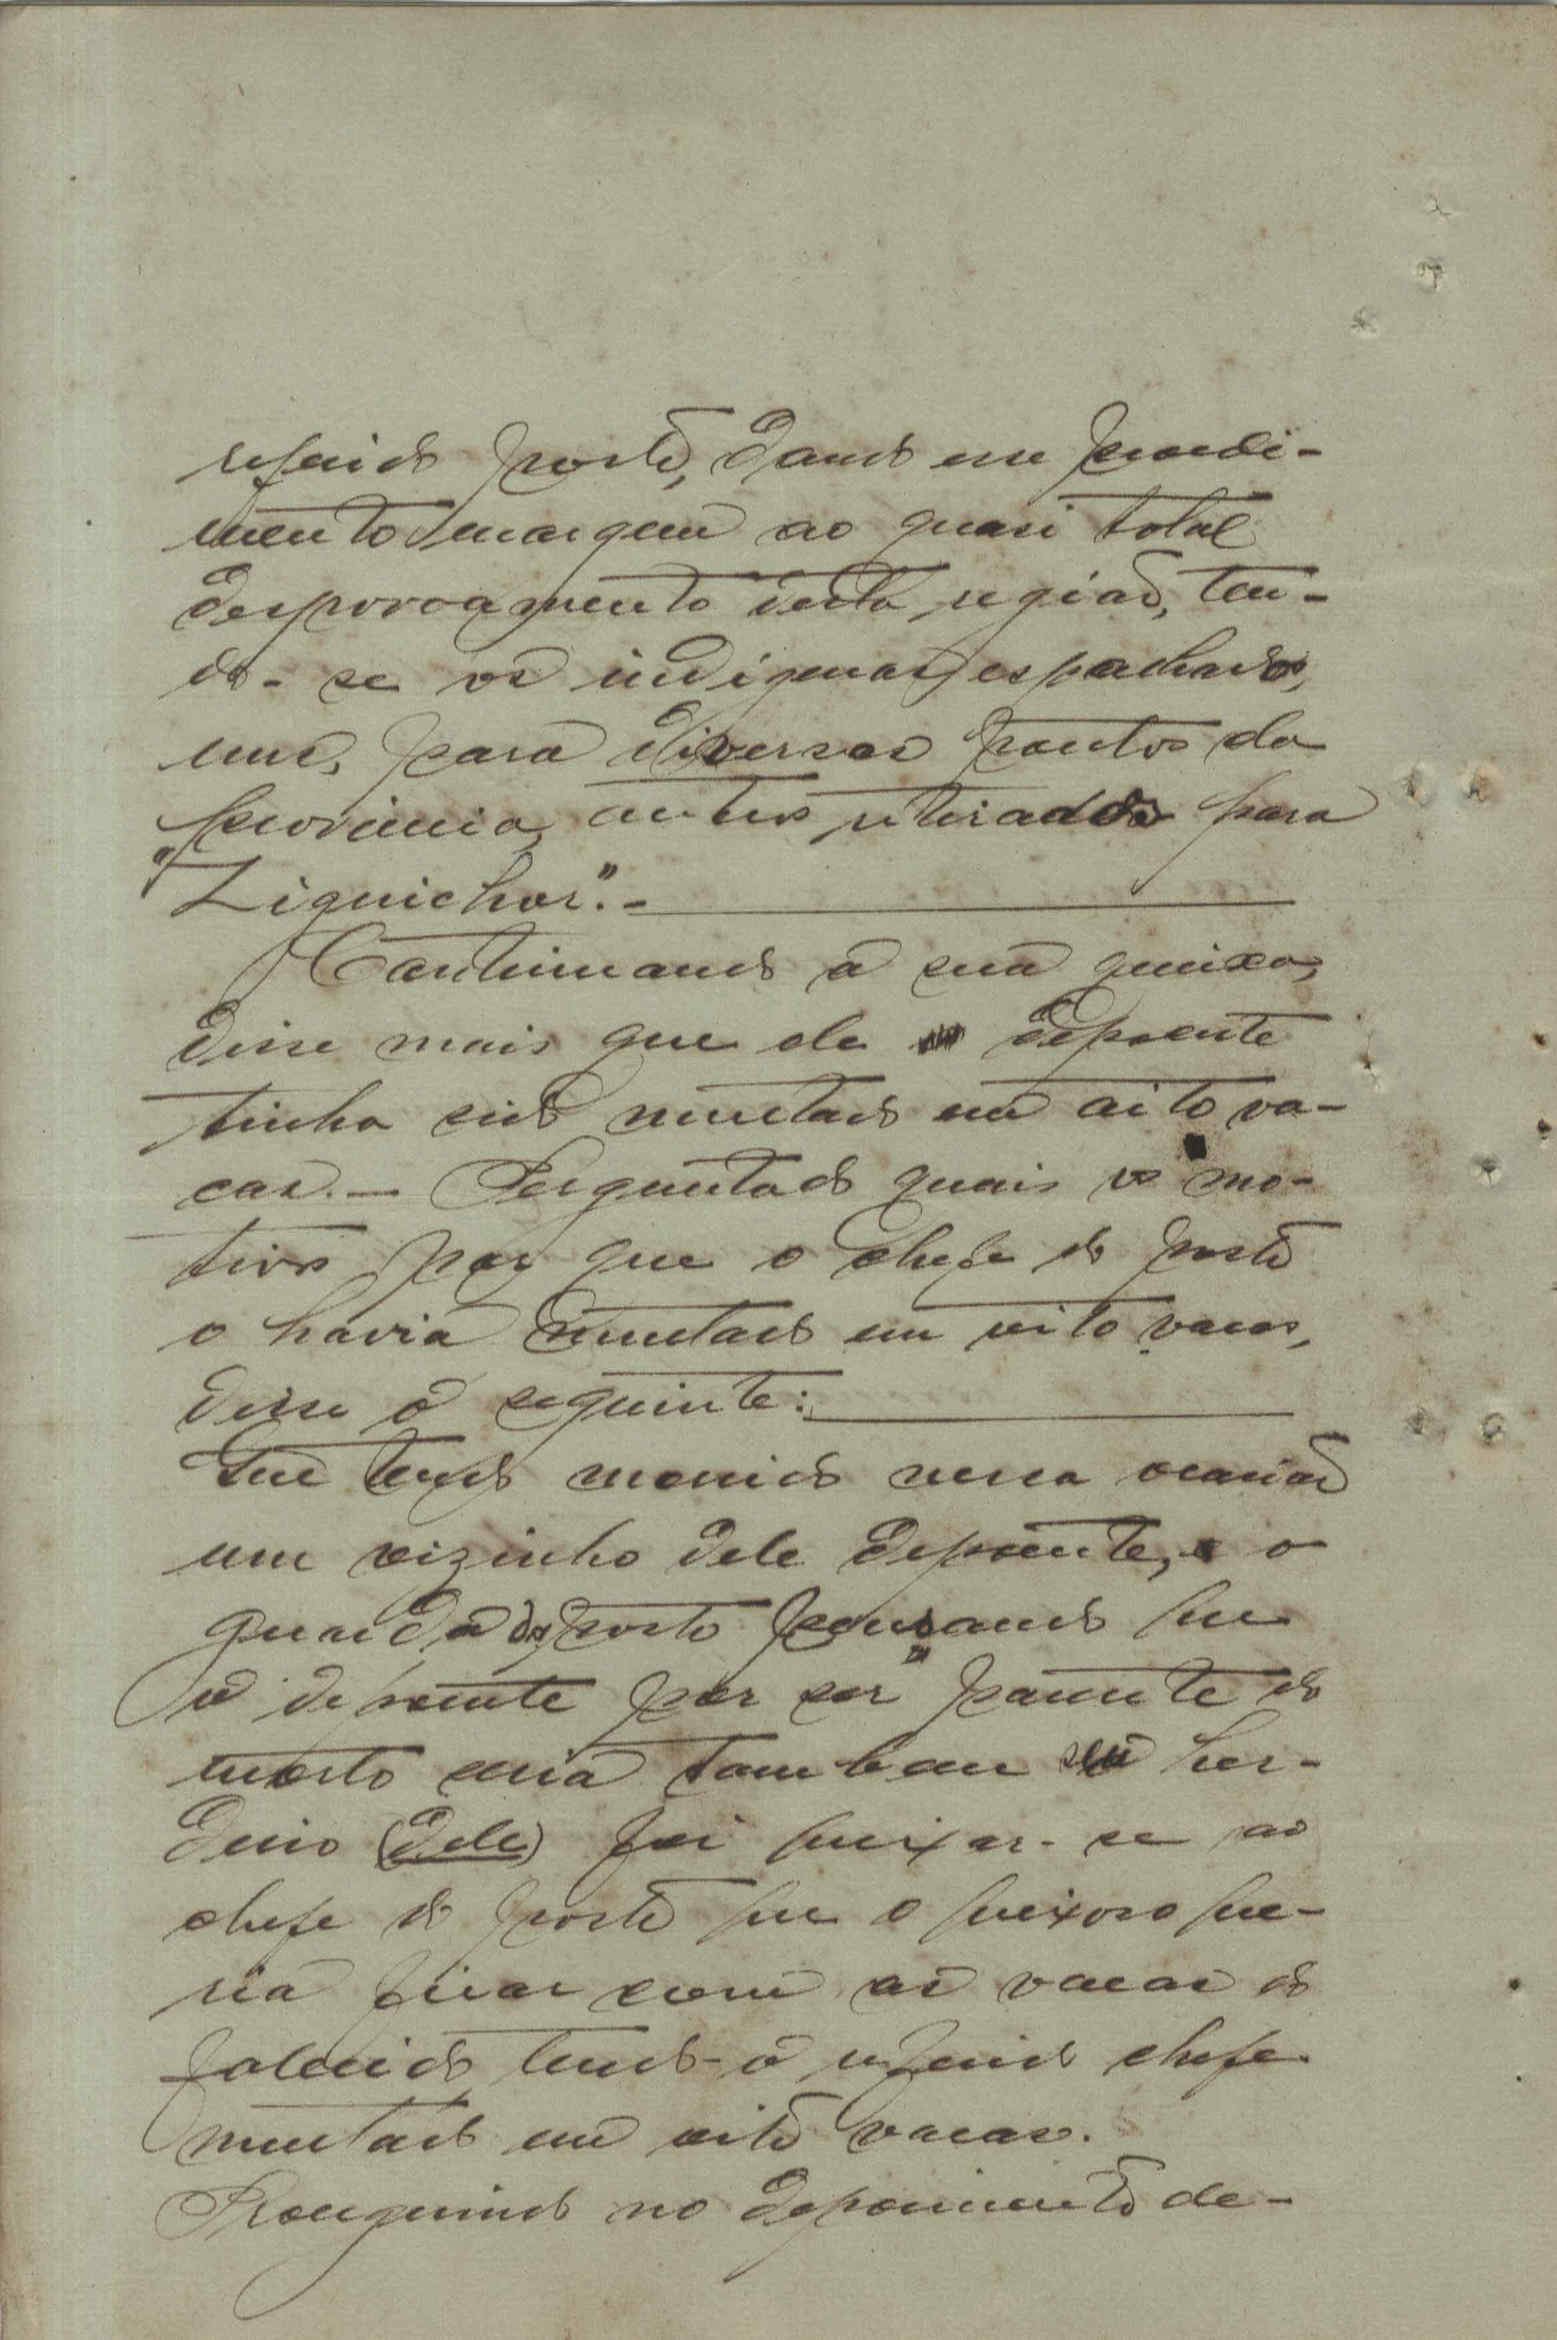 referido posto, dando esse procedi-
mento margem ao quasi total
despovoamento desta região, ten-
do-se os indigenas espalhados,
uns, para diversos pontos da
provincia, outros retirados para
"Ziguichor".-
Continuando a sua queixa,
disse mais que ele depoente
tinha sido multado em oito va-
cas.- Perguntado quais os mo-
tivos por que o chefe do posto
o havia multado em oito vacas,
disse o seguinte:
Que tendo morrido nessa ocasião
um vizinho dele depoente, o
guarda do posto pensando que
o depoente por ser parente do
morto seria tambem seu her-
deiro (dele) foi queixar-se ao
chefe do posto que o queixoso que-
ria ficar com as vacas do
falecido tendo-o referido chefe
multado em oito vacas.
Proseguindo no depoimento de-